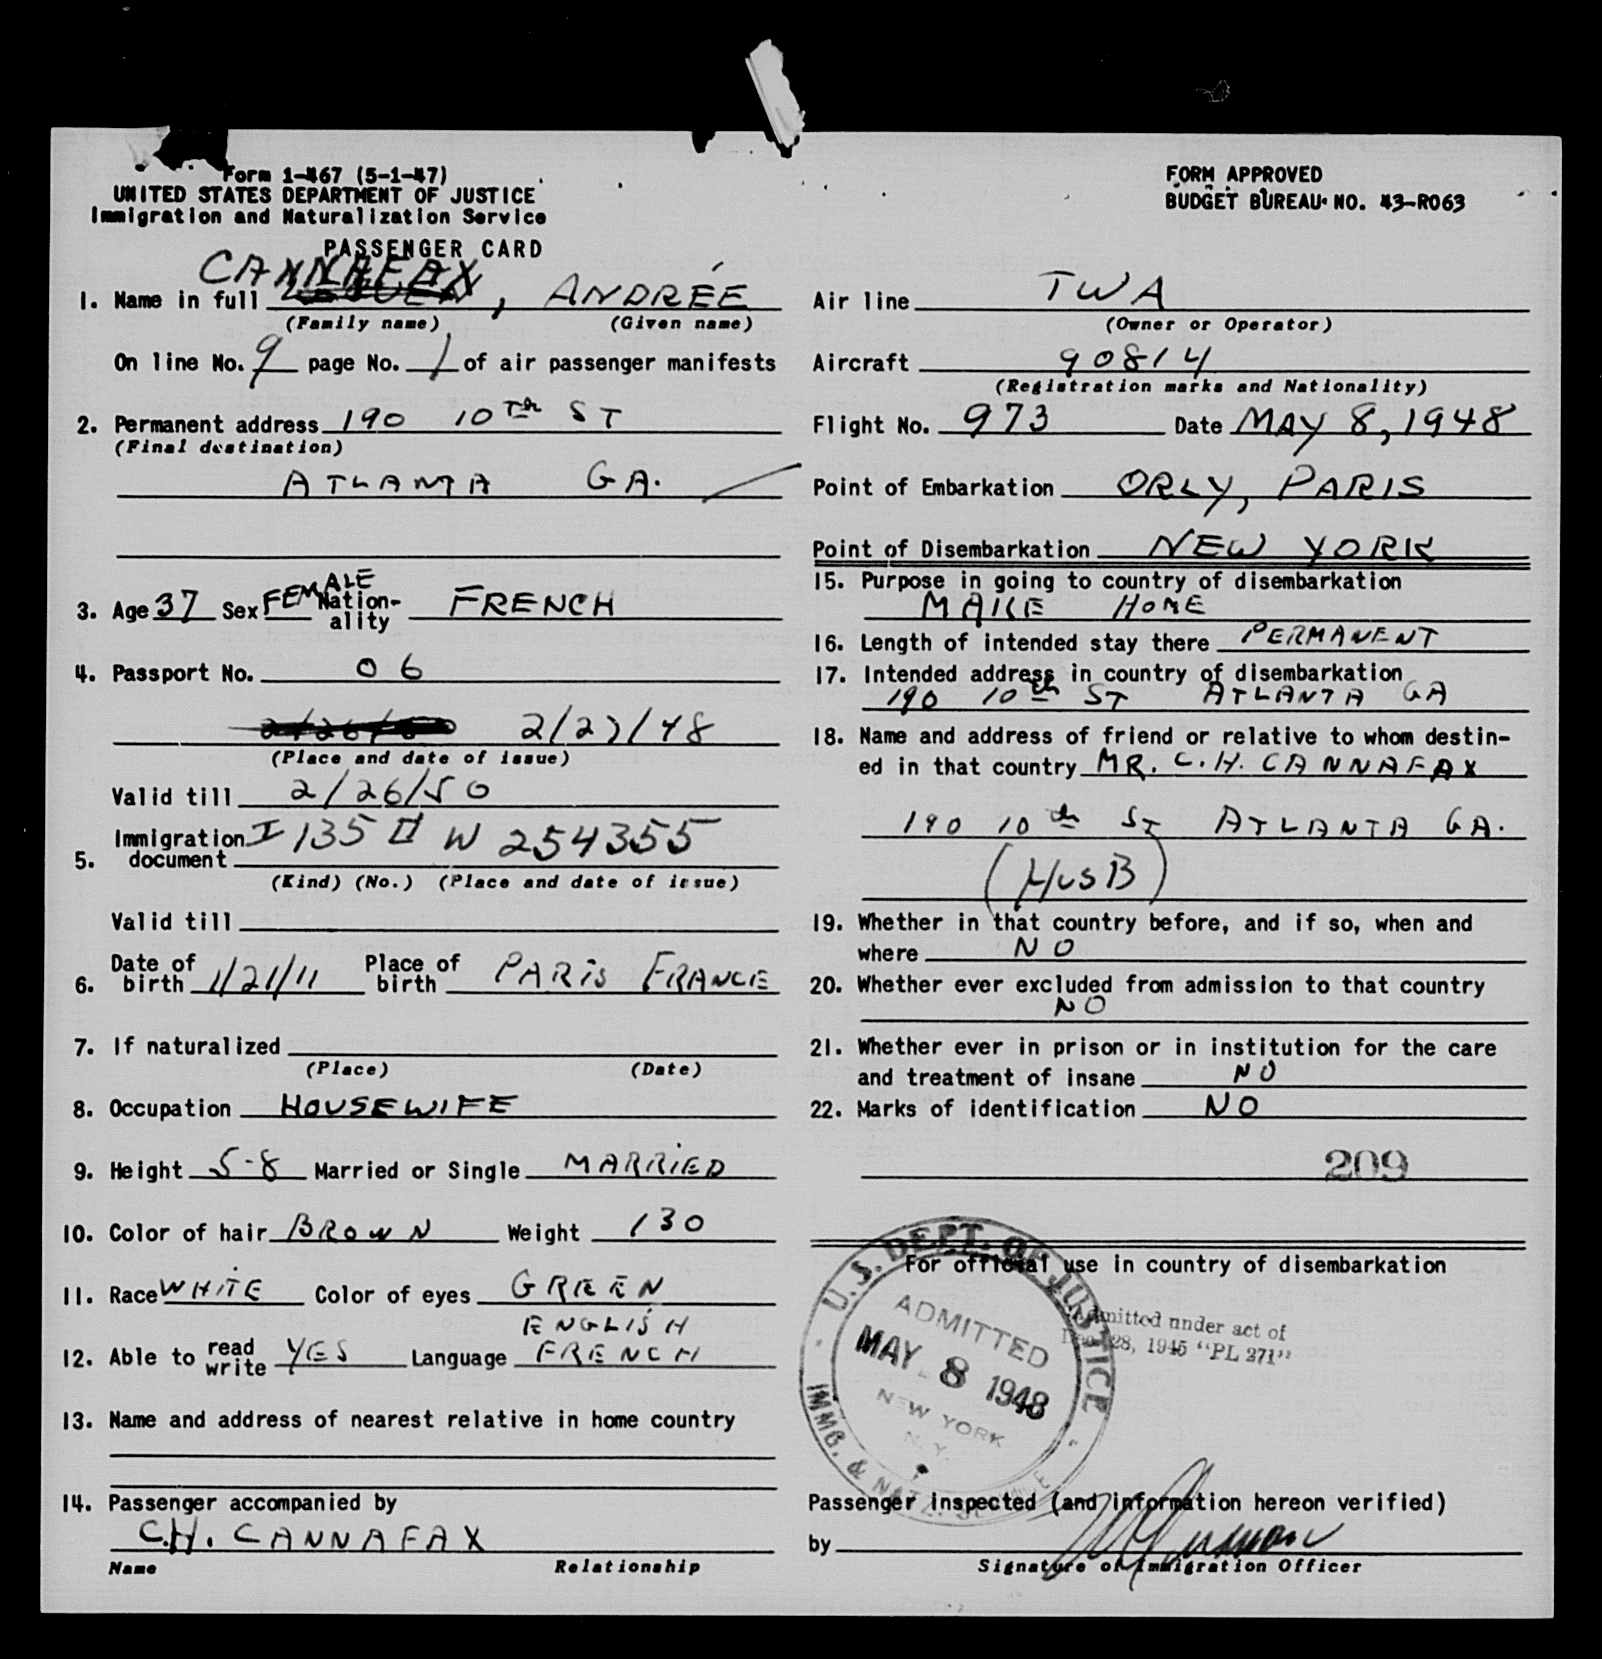 Form 1-467 (5-1-47)
UNITED STATES DEPARTMENT OF JUSTICE
Immigration and Naturalization Service
PASSENGER CARD
FORM APPROVED
BUDGET BUREAU NO. 43-R063
CANNAFAX
1. Name in full , ANDRÉE
(Family name) (Given name)
On line No. 9 page No. 1 of air passenger manifests
2. Permanent address 190 10TH ST
(Final destination)
ATLANTA GA.
3. Age 37 Sex FEMALE Nationality FRENCH
4. Passport No. 06
2/26/50 2/27/48
(Place and date of issue)
Valid till 2/26/50
5. Immigration document I 135 W 254355
(Kind) (No.) (Place and date of issue)
Valid till
6. Date of birth 1/21/11 Place of birth PARIS FRANCE
7. If naturalized
(Place) (Date)
8. Occupation HOUSEWIFE
9. Height 5-8 Married or Single MARRIED
10. Color of hair BROWN Weight 130
11. Race WHITE Color of eyes GREEN
ENGLISH
12. Able to read write YES Language FRENCH
13. Name and address of nearest relative in home country
14. Passenger accompanied by
C.H. CANNAFAX
Name Relationship
Air line TWA
(Owner or Operator)
Aircraft 90814
(Registration marks and Nationality)
Flight No. 973 Date MAY 8, 1948
Point of Embarkation ORLY, PARIS
Point of Disembarkation NEW YORK
15. Purpose in going to country of disembarkation
MAKE HOME
16. Length of intended stay there PERMANENT
17. Intended address in country of disembarkation
190 10th ST ATLANTA GA
18. Name and address of friend or relative to whom destin-
ed in that country MR. C.H. CANNAFAX
190 10th ST ATLANTA GA.
(HUSB)
19. Whether in that country before, and if so, when and
where NO
20. Whether ever excluded from admission to that country
NO
21. Whether ever in prison or in institution for the care
and treatment of insane NO
22. Marks of identification NO
209
For official use in country of disembarkation
U.S. DEPT. OF JUSTICE
ADMITTED
MAY 8 1948
NEW YORK
N.Y.
IMMG. & NATZ. SERVICE
Admitted under act of
Dec. 28, 1945 "PL 271"
Passenger inspected (and information hereon verified)
by
Signature of Immigration Officer